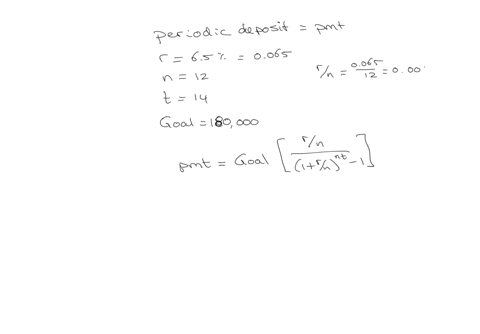 periodic deposit = pmt
r = 6.5% = 0.065
n = 12
r/n = 0.065/12 = 0.00
t = 14
Goal = 180,000
pmt = Goal [ r/n / (1 + r/n)^nt - 1 ]